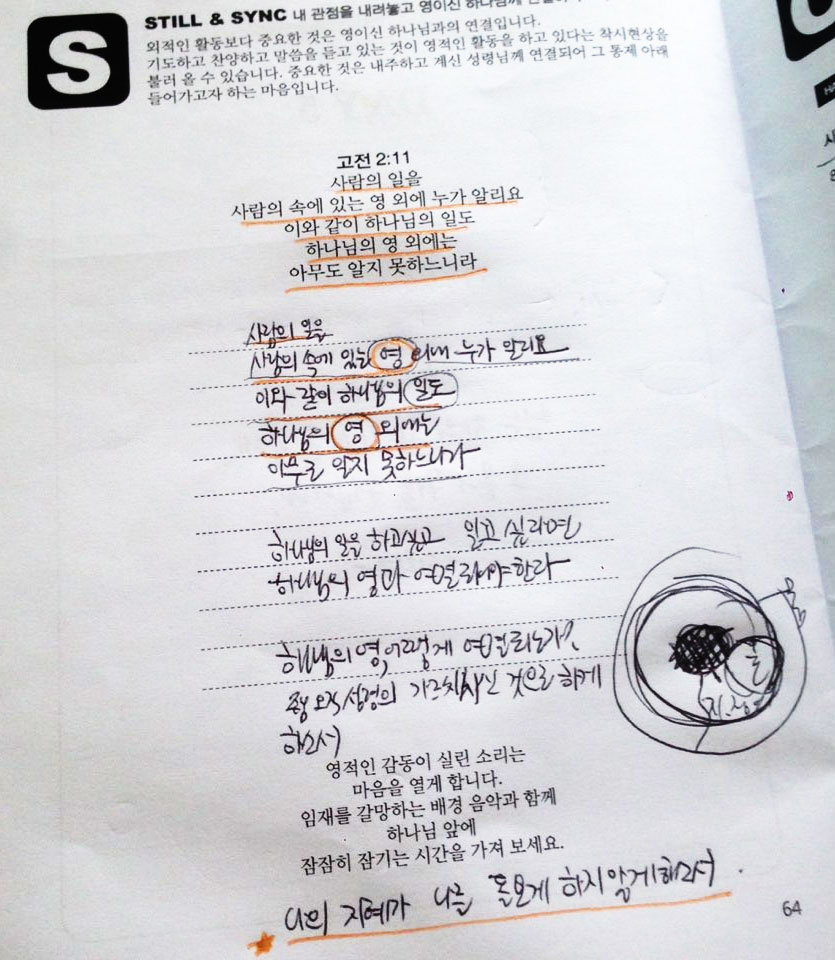 S
STILL & SYNC 내 관점을 내려놓고 영이신 하나님께
외적인 활동보다 중요한 것은 영이신 하나님과의 연결입니다.
기도하고 찬양하고 말씀을 듣고 있는 것이 영적인 활동을 하고 있다는 착시현상을
불러 올 수 있습니다. 중요한 것은 내주하고 계신 성령님께 연결되어 그 통제 아래
들어가고자 하는 마음입니다.
고전 2:11
사람의 일을
사람의 속에 있는 영 외에 누가 알리요
이와 같이 하나님의 일도
하나님의 영 외에는
아무도 알지 못하느니라
사람의 일을
사람의 속에 있는 영 외에 누가 알리요
이와 같이 하나님의 일도
하나님의 영 외에는
아무도 알지 못하느니라
하나님의 일을 하고 알고 싶다면
하나님의 영과 연결되야 한다
하나님의 영, 어떻게 연결되는가?
오직 성령의 가르치신 것으로 하게
하소서
영적인 감동이 실린 소리는
마음을 열게 합니다.
임재를 갈망하는 배경 음악과 함께
하나님 앞에
잠잠히 잠기는 시간을 가져 보세요.
나의 지혜가 나를 돌보게 하지 않게 하소서
64